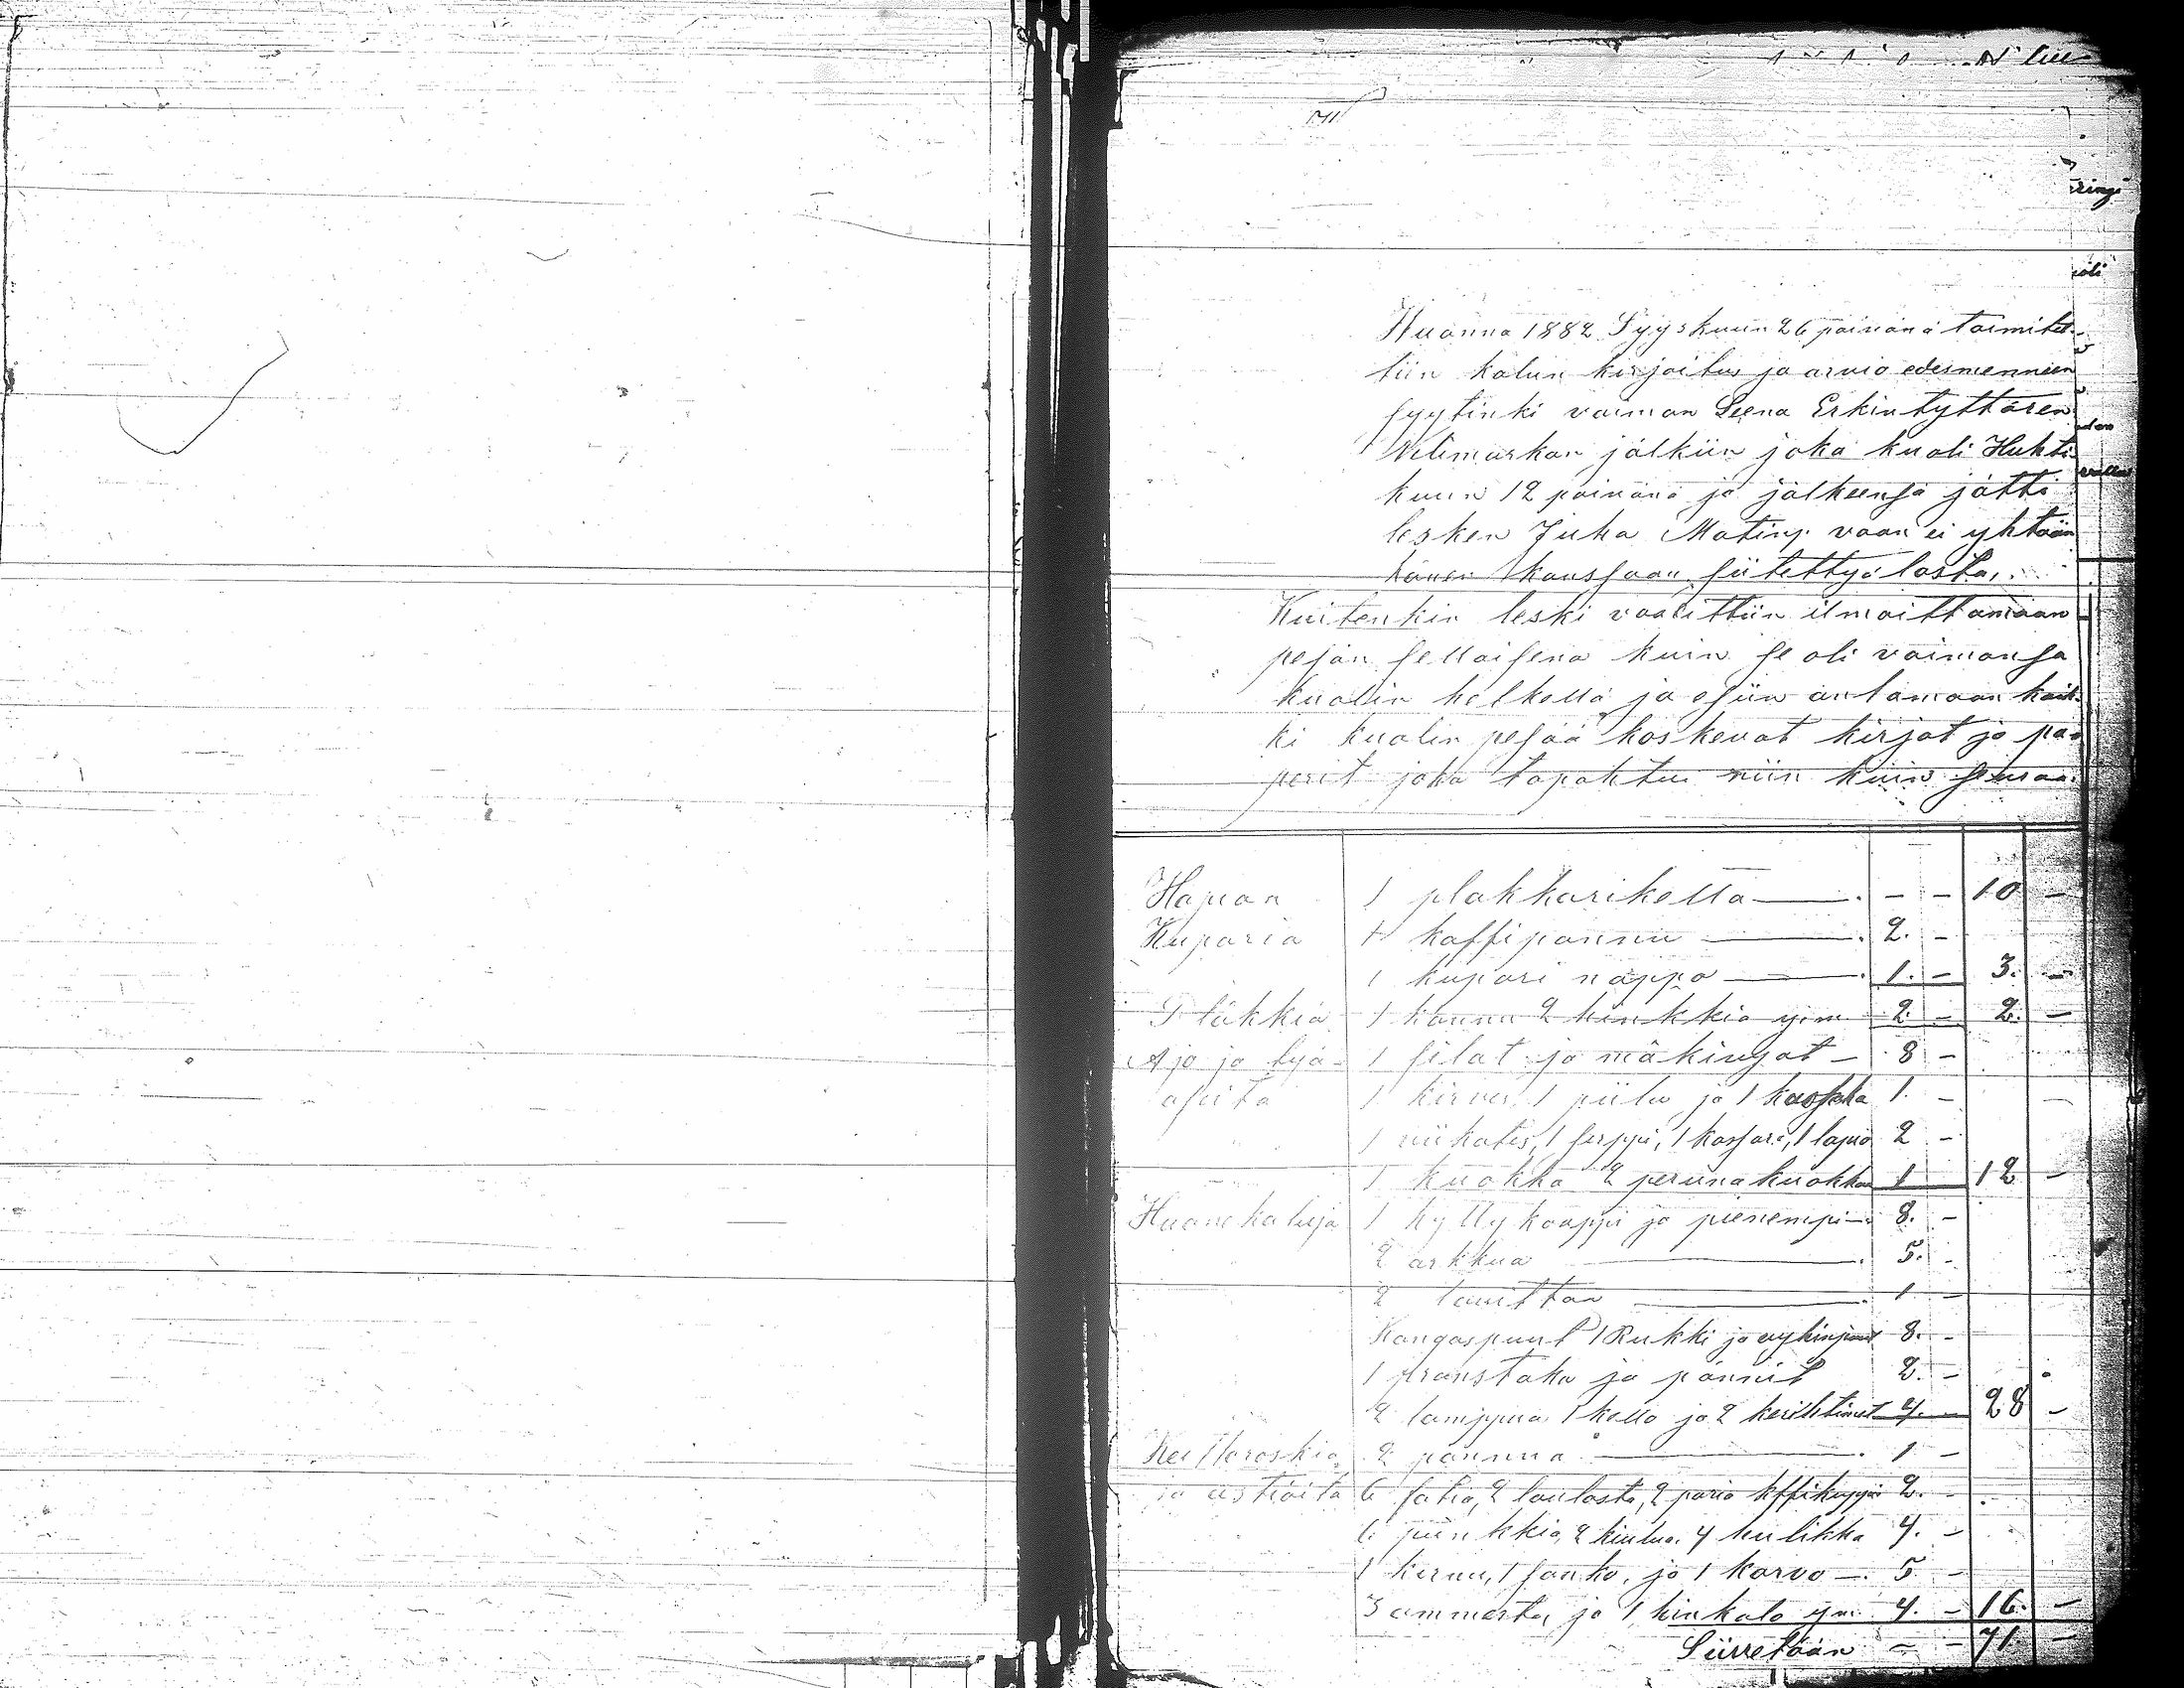 Wuonna 1882 Syyskuun 26 päivänä toimitet-
tiin kalun kirjoitus ja arvio edesmenneen
syytinki vaimon Leena Erkintyttären
jälkiin joka kuoli Huhti-
kuun 12 päivänä ja jälkeensä jätti
lesken Juha Matinp. vaan ei yhtään
hänen kanssaan siitettyä lasta,
Kuitenkin leski vaadittiin ilmoittamaan
pesän sellaisena kuin se oli vaimonsa
kuolin hetkellä ja esiin antamaan kaik-
ki kuolin pesää koskevat kirjat ja pa-
perit joka tapahtui niin kuin seuraa.
Hopiaa 1 plakkarikello - - 10 -
Kuparia 1 kaffipannu 2. -
1 kupari näppö 1. - 3. -
Pläkkiä 1 kannu 2 kinkkiä ym 2 - 2. -
Ajo ja työ- 1 silat ja mäkivyöt 8 -
aseita 1 kirves 1 piilu ja 1 1. -
1 viikate, 1 sirppi, 1 1 lapio 2 -
1 kuokka 2 perunakuokkaa 1 12 -
Huonekaluja 1 hyllykaappi ja pienempi 8. -
2 arkkua 5. -
2 1 -
Kangaspuut 1 Rukki ja 8. -
1 ja 2. -
2 lamppua 1 kello ja 2 4. - 28 -
2 pannua 1 -
ja astioita 6 fatia, 2 laulasta, 2 paria kffikuppia 2. -
6 2 kiulua. 4 4. -
1 kirnu, 1 sanko, ja 1 korvo 5 -
3 ammetta, ja 1 hinkalo ym 4. - 16. -
Siirretään - - 71. -